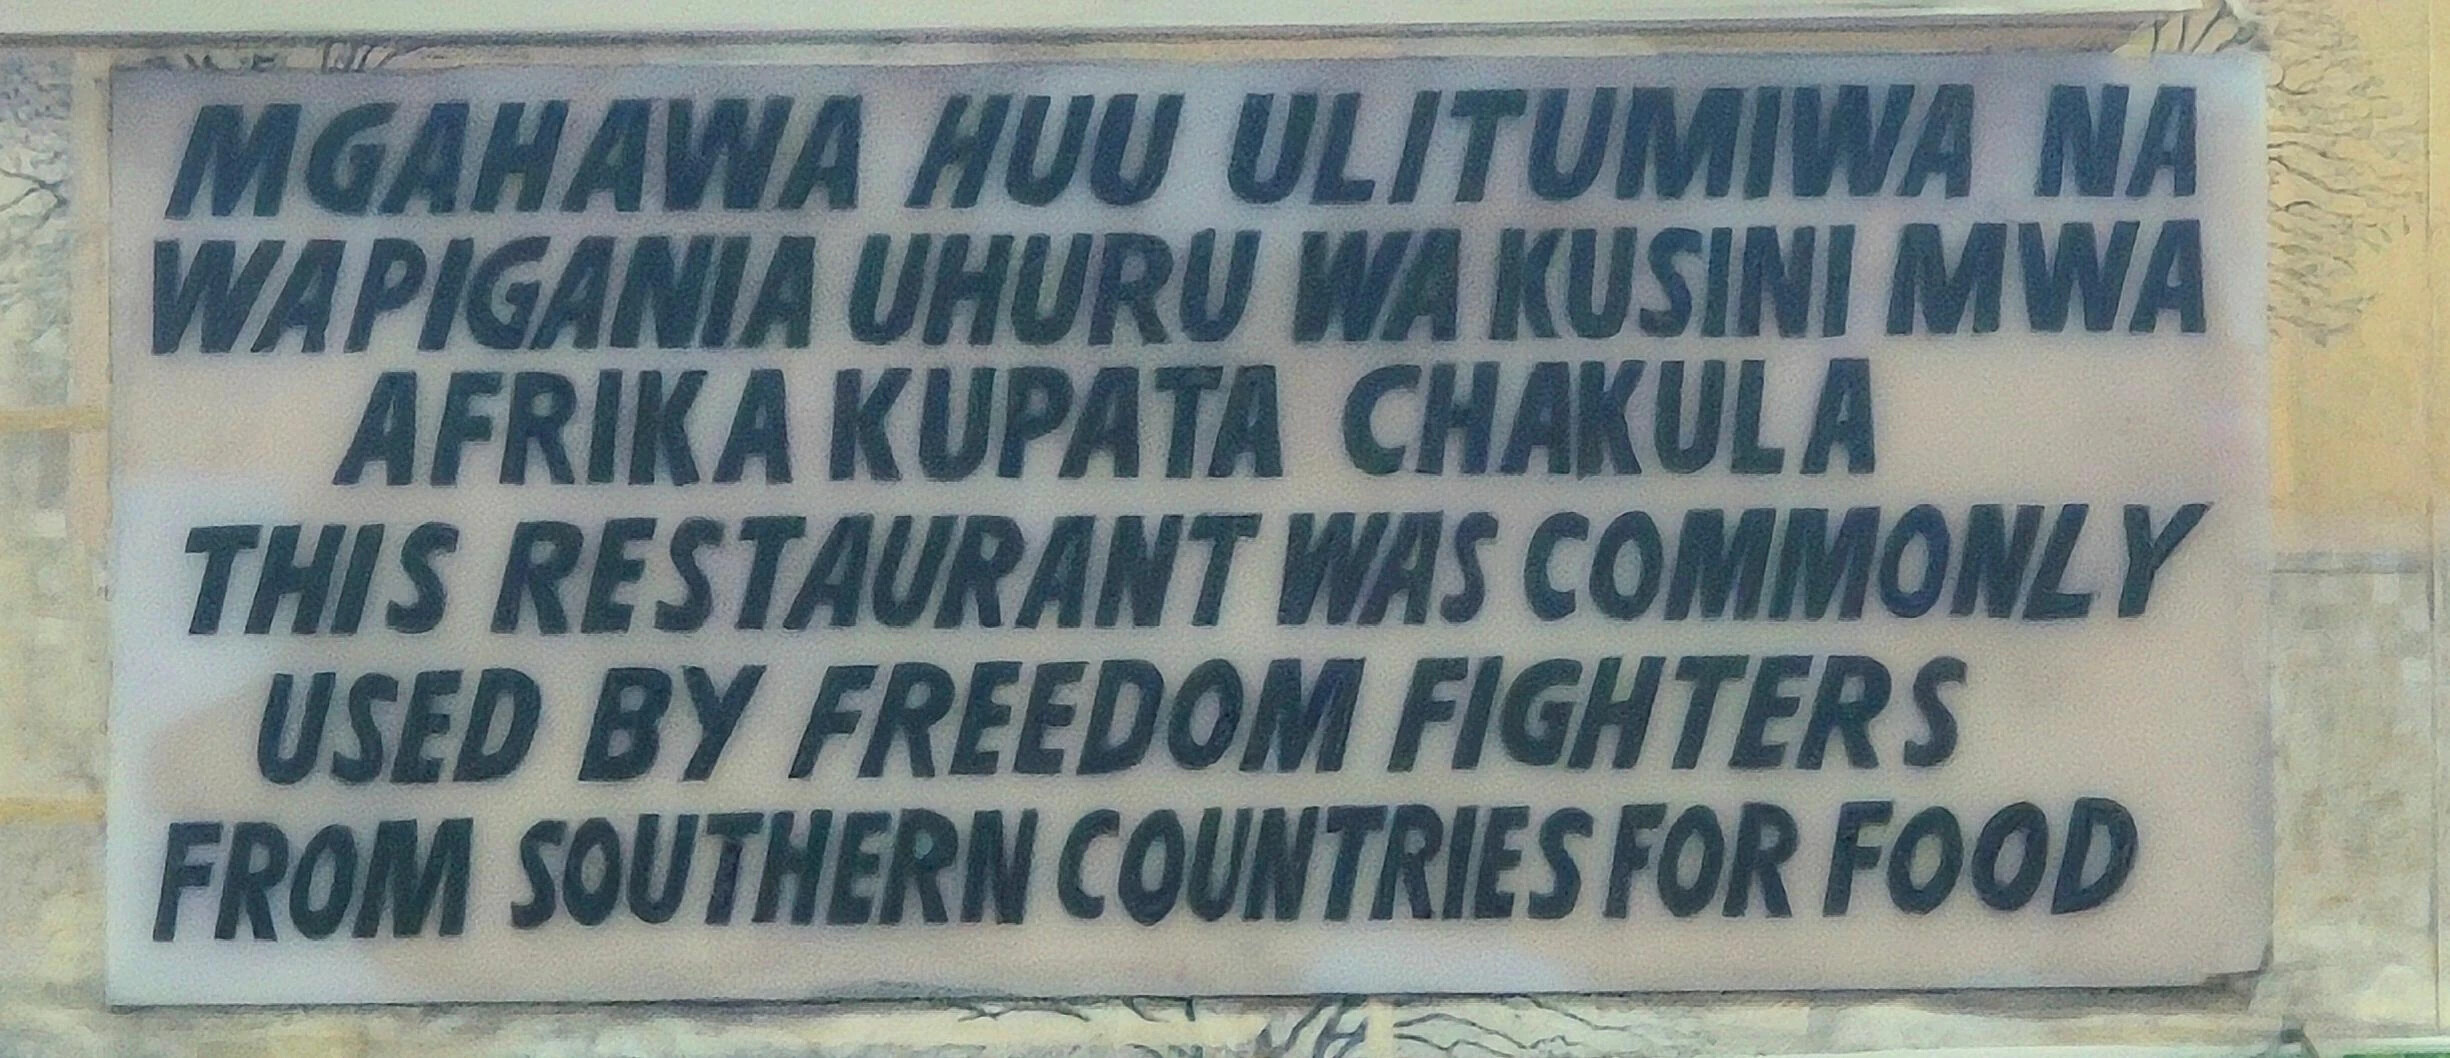 MGAHAWA HUU ULITUMIWA NA
WAPIGANIA UHURU WA KUSINI MWA
AFRIKA KUPATA CHAKULA
THIS RESTAURANT WAS COMMONLY
USED BY FREEDOM FIGHTERS
FROM SOUTHERN COUNTRIES FOR FOOD